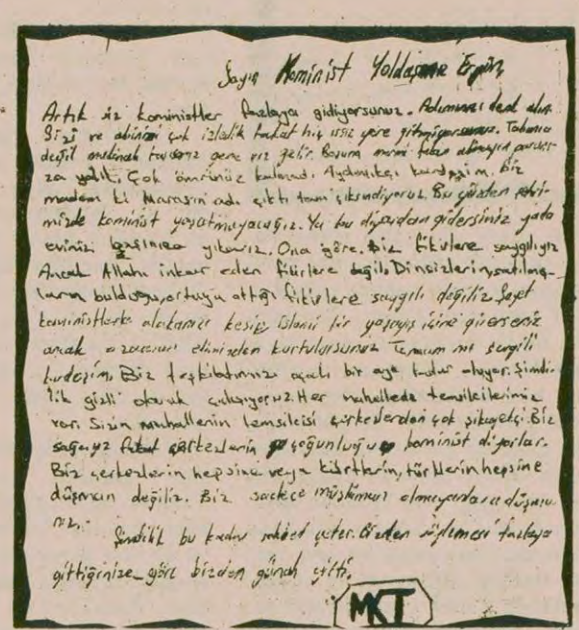 Sayın Kominist Yoldaşıma Ergün,
Artık siz koministler fazlaya gidiyorsunuz. Adımınızı denk alın
Sizi ve abinizi çok izledik fakat hiç ıssız yere gitmiyorsunuz. Tabanca
değil makinalı tarasınız gene vız gelir. Başına mermi
yazık. Çok ömrünüz kalmadı. Aydınlıkçı kardeşim. Biz
madem ki Maraşın adı çıktı tam çıksın diyoruz. Bu günden şehri-
mizde kominist yaşatmayacağız. Ya bu diyardan gidersiniz yada
evinizi başınıza yıkarız. Ona göre. Biz fikirlere saygılıyız
Ancak Allahı inkar eden fikirlere değil. Dinsizlerin, satılmış-
ların bulduğu, ortaya attığı fikirlere saygılı değiliz. Şayet
koministlerle alakanızı kesip İslami bir yaşayış içine girerseniz
ancak o zaman elimizden kurtulursunuz Tamam mı sevgili
kardeşim. Biz teşkilatımızı açalı bir aya kadar oluyor. Şimdi-
lik gizli olarak çalışıyoruz. Her mahallede temsilcilerimiz
var. Sizin mahallenin temsilcisi çerkezlerden çok şikayetçi. Biz
sağcıyız fakat çerkezlerin çoğunluğu kominist diyorlar.
Biz çerkezlerin hepsine veya kürtlerin, türklerin hepsine
düşman değiliz. Biz sadece müslüman olmayanlara düşma-
nız.
Şimdilik bu kadar sohbet yeter. Bizden söylemesi fazlaya
gittiğinize göre bizden günah gitti.
MKT